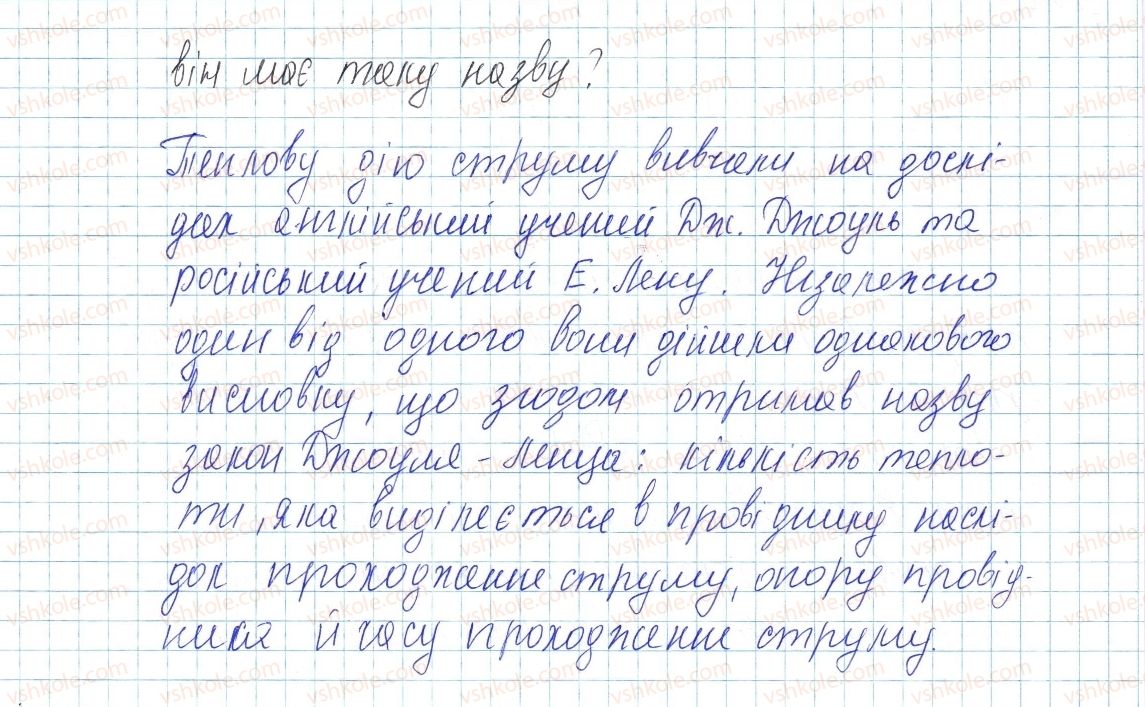 він має таку назву?
Теплову дію струму вивчали на дослі-
дах англійський учений Дж. Джоуль та
російський учений Е. Ленц. Незалежно
один від одного вони дійшли однакового
висновку, що згодом отримав назву
закон Джоуля-Ленца: кількість тепло-
ти, яка виділяється в провіднику наслі-
док проходження струму, опору провід-
ника й часу проходження струму.